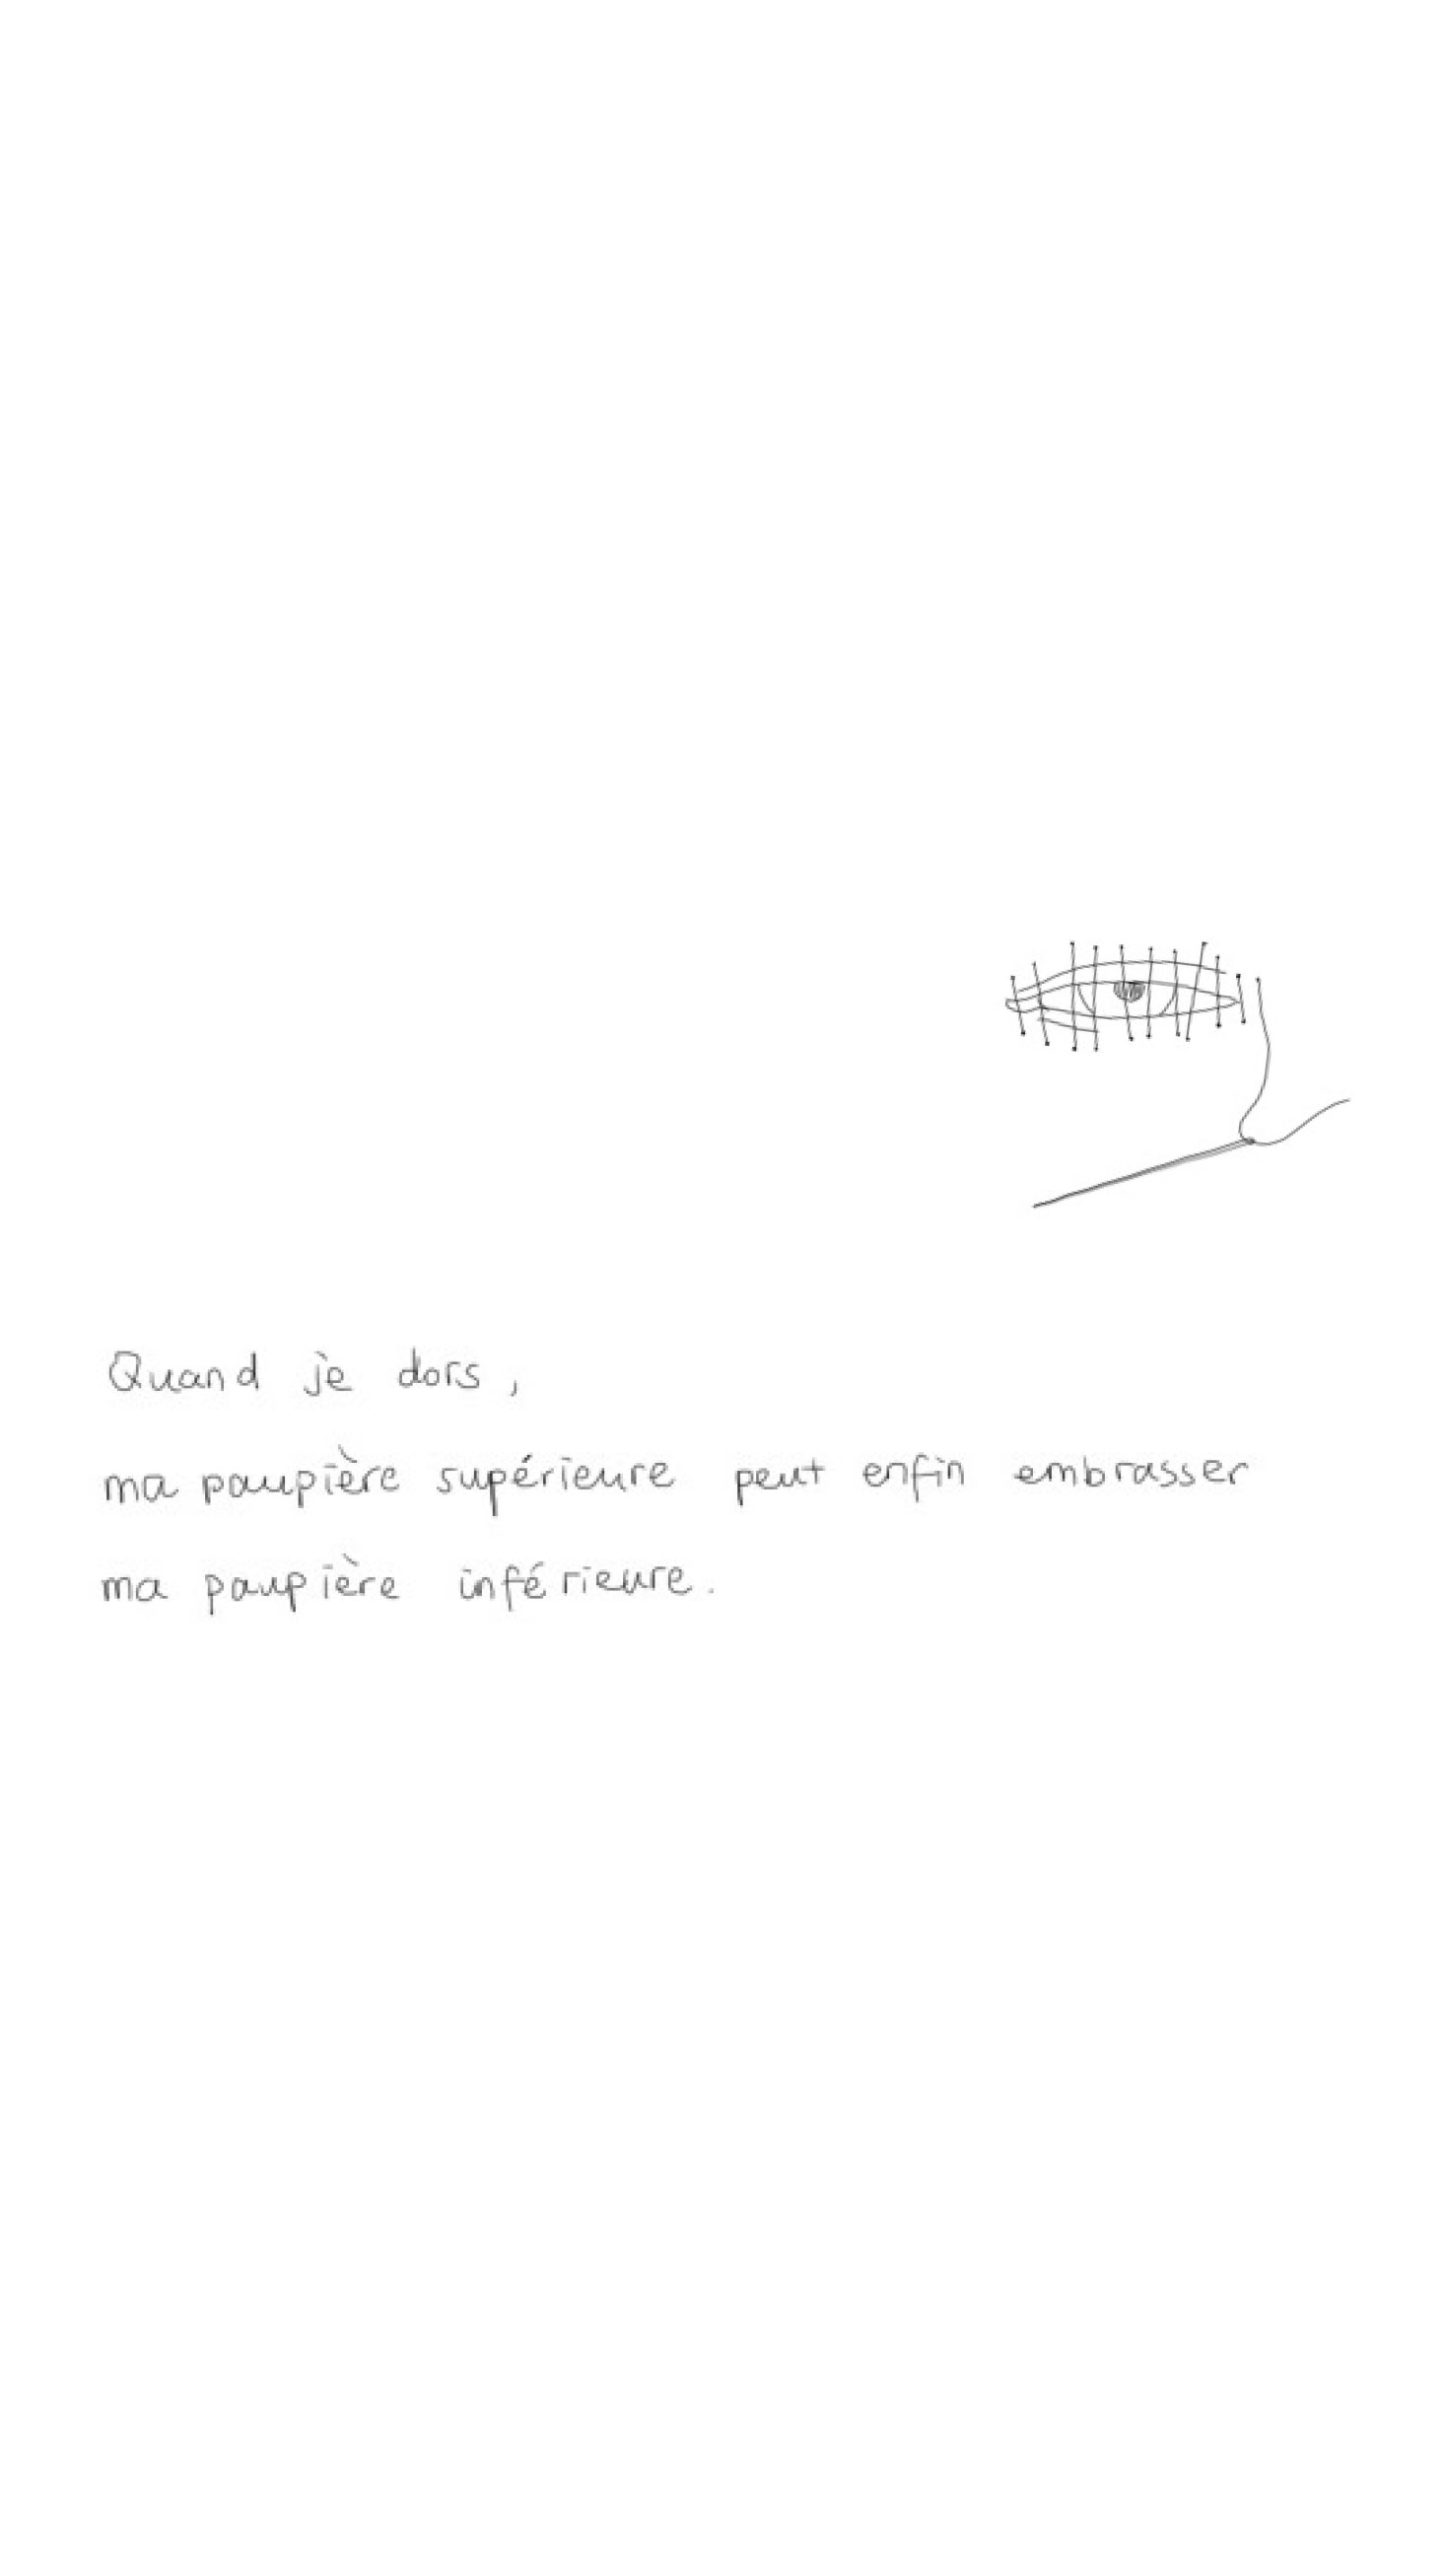 Quand je dors,
ma paupière supérieure peut enfin embrasser
ma paupière inférieure.